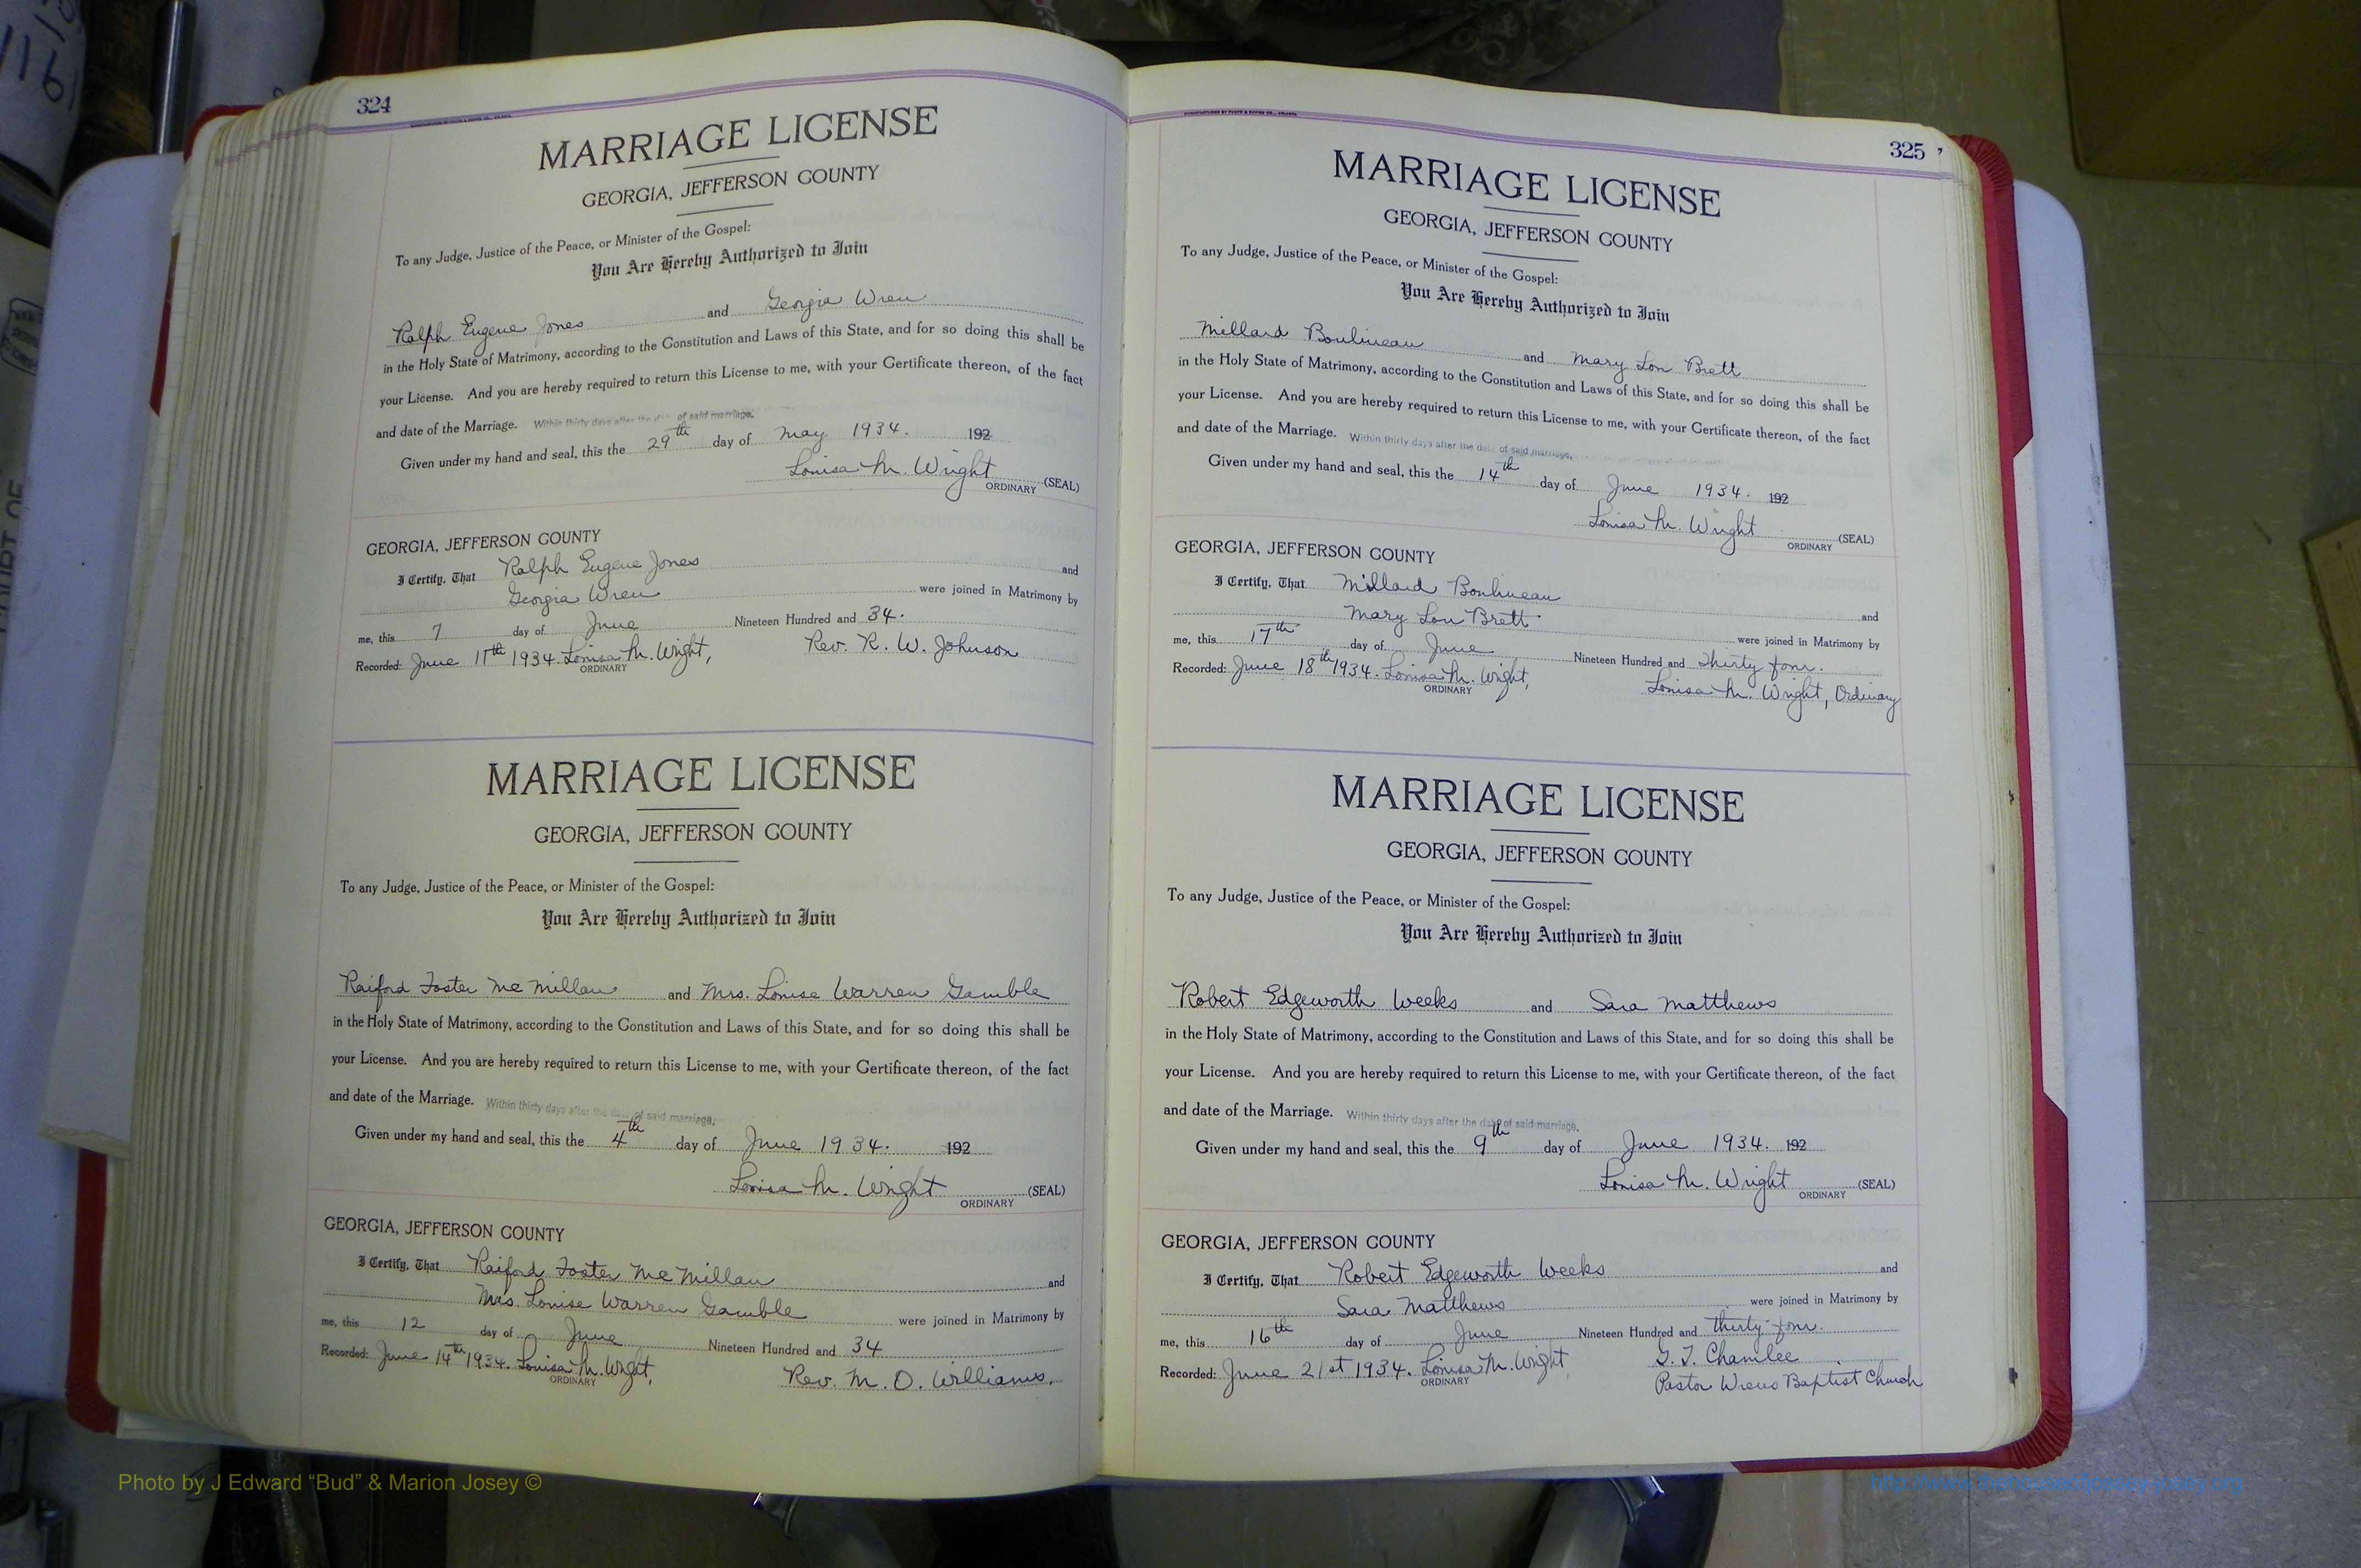 324
MARRIAGE LICENSE
GEORGIA, JEFFERSON COUNTY
To any Judge, Justice of the Peace, or Minister of the Gospel:
You Are Hereby Authorized to Join
Ralph Eugene Jones and Georgia Wren
in the Holy State of Matrimony, according to the Constitution and Laws of this State, and for so doing this shall be
your License. And you are hereby required to return this License to me, with your Certificate thereon, of the fact
and date of the Marriage. Within thirty days after the date of said marriage.
Given under my hand and seal, this the 29th day of May 1934. 192
Louisa M. Wright (SEAL)
ORDINARY
GEORGIA, JEFFERSON COUNTY
I Certify, That Ralph Eugene Jones and
Georgia Wren were joined in Matrimony by
me, this 7 day of June Nineteen Hundred and 34.
Recorded: June 11th 1934. Louisa M. Wright, Rev. R. W. Johnson
ORDINARY
MARRIAGE LICENSE
GEORGIA, JEFFERSON COUNTY
To any Judge, Justice of the Peace, or Minister of the Gospel:
You Are Hereby Authorized to Join
Raiford Foster McMillan and Mrs. Louise Warren Gamble
in the Holy State of Matrimony, according to the Constitution and Laws of this State, and for so doing this shall be
your License. And you are hereby required to return this License to me, with your Certificate thereon, of the fact
and date of the Marriage. Within thirty days after the date of said marriage.
Given under my hand and seal, this the 4th day of June 1934. 192
Louisa M. Wright (SEAL)
ORDINARY
GEORGIA, JEFFERSON COUNTY
I Certify, That Raiford Foster McMillan and
Mrs. Louise Warren Gamble were joined in Matrimony by
me, this 12 day of June Nineteen Hundred and 34
Recorded: June 14th 1934. Louisa M. Wright, Rev. M. O. Williams.
ORDINARY
325
MARRIAGE LICENSE
GEORGIA, JEFFERSON COUNTY
To any Judge, Justice of the Peace, or Minister of the Gospel:
You Are Hereby Authorized to Join
Millard Boulineau and Mary Lou Brett
in the Holy State of Matrimony, according to the Constitution and Laws of this State, and for so doing this shall be
your License. And you are hereby required to return this License to me, with your Certificate thereon, of the fact
and date of the Marriage. Within thirty days after the date of said marriage.
Given under my hand and seal, this the 14th day of June 1934. 192
Louisa M. Wright (SEAL)
ORDINARY
GEORGIA, JEFFERSON COUNTY
I Certify, That Millard Boulineau and
Mary Lou Brett were joined in Matrimony by
me, this 17th day of June Nineteen Hundred and Thirty four.
Recorded: June 18th 1934. Louisa M. Wright, Louisa M. Wright, Ordinary
ORDINARY
MARRIAGE LICENSE
GEORGIA, JEFFERSON COUNTY
To any Judge, Justice of the Peace, or Minister of the Gospel:
You Are Hereby Authorized to Join
Robert Edgeworth Weeks and Sara Matthews
in the Holy State of Matrimony, according to the Constitution and Laws of this State, and for so doing this shall be
your License. And you are hereby required to return this License to me, with your Certificate thereon, of the fact
and date of the Marriage. Within thirty days after the date of said marriage.
Given under my hand and seal, this the 9th day of June 1934. 192
Louisa M. Wright (SEAL)
ORDINARY
GEORGIA, JEFFERSON COUNTY
I Certify, That Robert Edgeworth Weeks and
Sara Matthews were joined in Matrimony by
me, this 16th day of June Nineteen Hundred and thirty four.
Recorded: June 21st 1934. Louisa M. Wright G. T. Chamlee
ORDINARY Pastor Wrens Baptist Church
Photo by J Edward “Bud” & Marion Josey ©